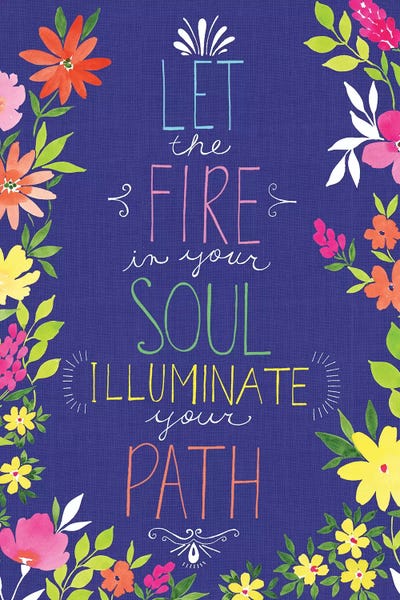 LET
the
FIRE
in your
SOUL
ILLUMINATE
your
PATH